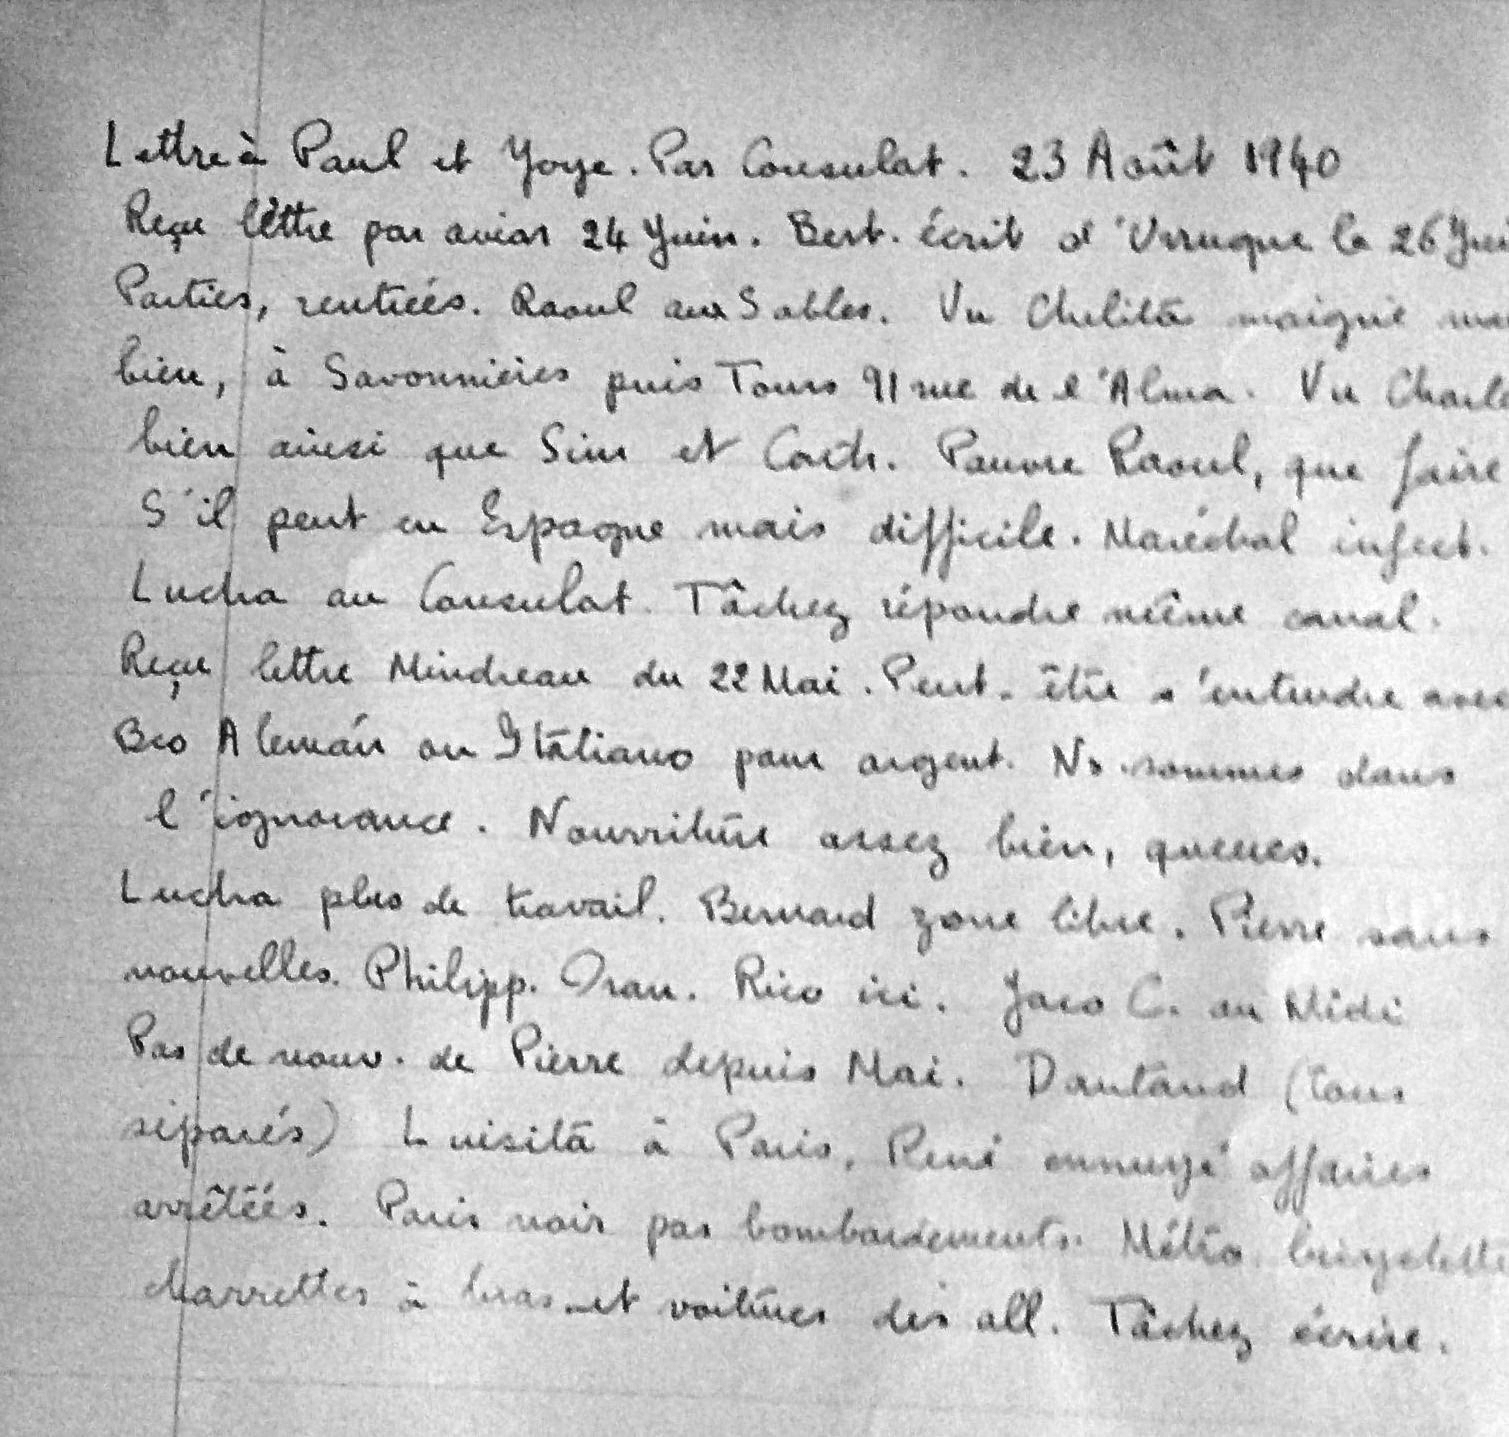 Lettre à Paul et Yoye. Par Consulat. 23 Août 1940
Reçu lettre par avion 24 Juin. Bert. écrit d'Urrugne le 26 Jui
Parties, rentrées. Raoul aux Sables. Vu Chelita maigrie mai
bien, à Savonnières puis Tours 91 rue de l'Alma. Vu Charle
bien ainsi que Sim et Cath. Pauvre Raoul, que faire
S'il peut en Espagne mais difficile. Maréchal infect.
Lucha au Consulat. Tâchez répondre même canal.
Reçu lettre Mindreau du 22 Mai. Peut-être s'entendre avec
Bco Alemán ou Italiano pour argent. Ns. sommes dans
l'ignorance. Nourriture assez bien, queues.
Lucha plus de travail. Bernard zone libre. Pierre sans
nouvelles. Philipp. Oran. Rico ici. Jaco C. au Midi
Pas de nouv. de Pierre depuis Mai. Dautaud (tous
séparés) Luisita à Paris, René ennuyé affaires
arrêtées. Paris noir pas bombardements. Métro, bicyclette
charrettes à bras et voitures des all. Tâchez écrire.